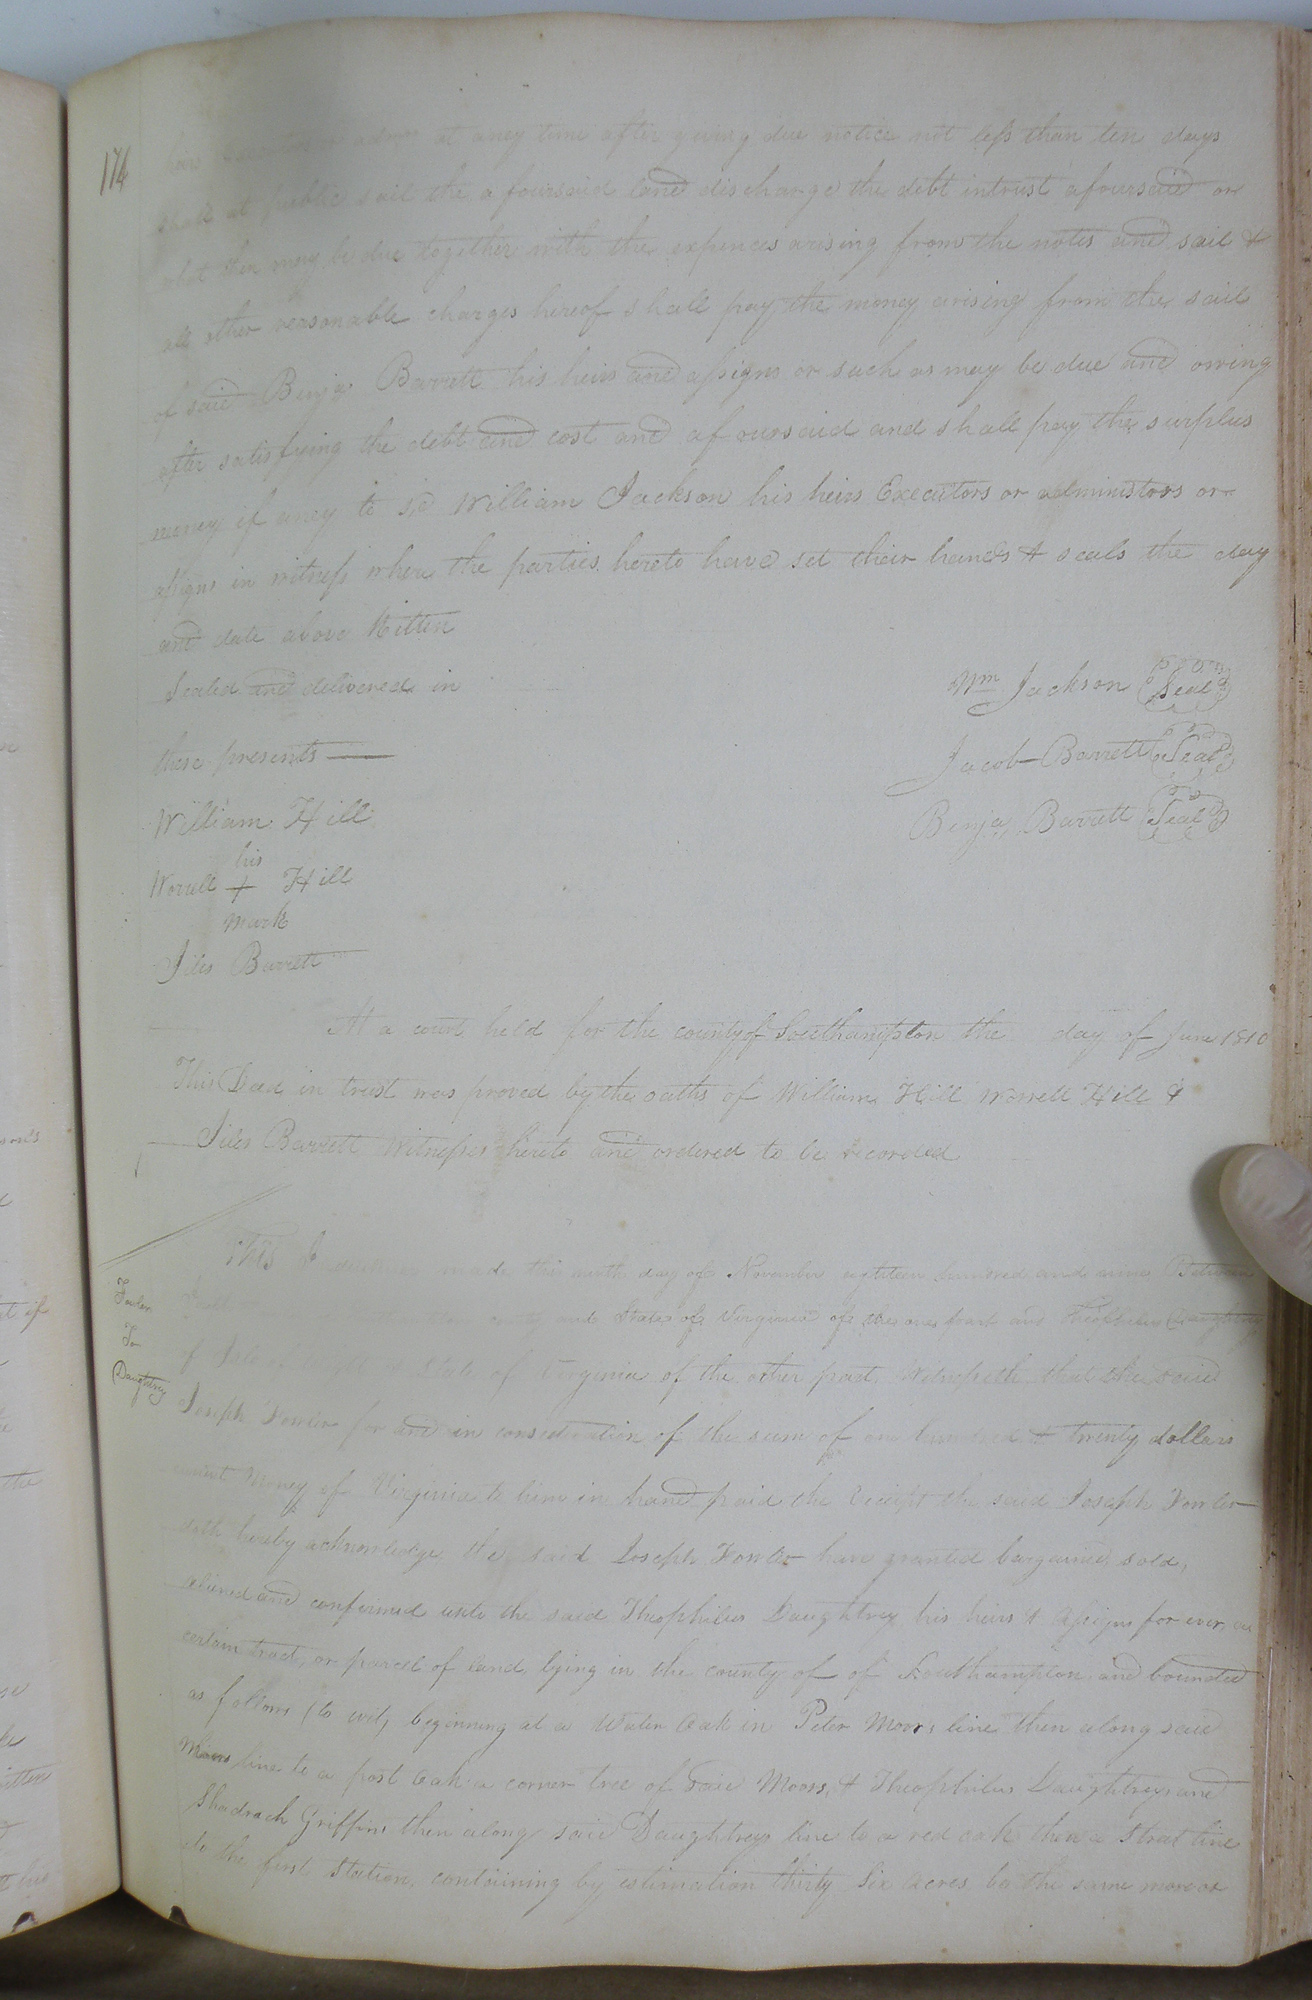 174
at aney time after giving due notice not less than ten days
shall at publie sail the a foursaid land discharge the debt intrust afoursaid or
what then may be due together with the expences arising from the notes and sail &
all other reasonable charges hereof shall pay the money arising from the sail
of said Benja Barrett his heirs and assigns or such as may be due and owing
after satisfying the debt and cost and afoursaid and shall pay the surplus
money if aney to sd William Jackson his heirs Executors or administors or
assigns in witness where the parties hereto have set their hands & seals the day
and date above Ritten
Sealed and delivered in
these presents
Wm Jackson Seal
Jacob Barrett Seal
Benja Barrett Seal
William Hill
his
Worrell + Hill
mark
Jiles Barrett
At a court held for the county of Southampton the day of June 1810
This Deed in trust was proved by the oaths of William Hill Worrell Hill &
Jiles Barrett Witnesses hereto and ordered to be recorded
Fowler
To
Daughtrey
This Indenture made this day of November eighteen hundred and nine Between
county and State of Virginia of the one part and Theophilus Daughtrey
of Isle of Wight & State of Virginia of the other part Witnesseth that the said
Joseph Fowler for and in consideration of the sum of one hundred & twenty dollars
current Money of Virginia to him in hand paid the receipt the said Joseph Fowler
doth hereby acknowledge the said Joseph Fowler have granted bargained sold,
aliened and confirmed unto the said Theophilus Daughtrey his heirs & assigns for ever, a
certain tract, or parcel of land lying in the county of of Southampton and bounded
as follows (to wit, beginning at a Water Oak in Peter Moors line then along said
Moors line to a post Oak a corner tree of said Moors, & Theophilus Daughtreys and
Shadrach Griffins then along said Daughtreys line to a red oak then a strat line
to the first station, containing by estimation thirty Six acres be the same more or